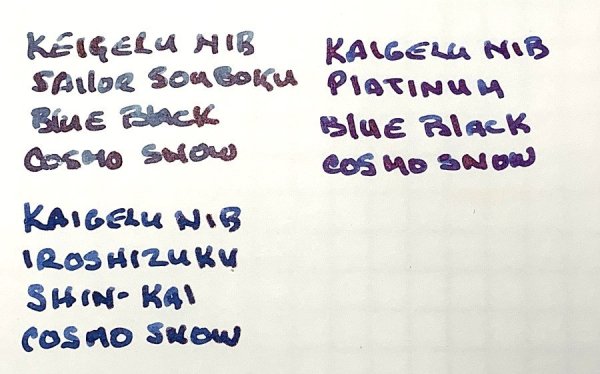 KEIGELU NIB
SAILOR SOUBOKU
BLUE BLACK
COSMO SNOW
KAIGELU NIB
PLATINUM
BLUE BLACK
COSMO SNOW
KAIGELU NIB
IROSHIZUKU
SHIN-KAI
COSMO SNOW